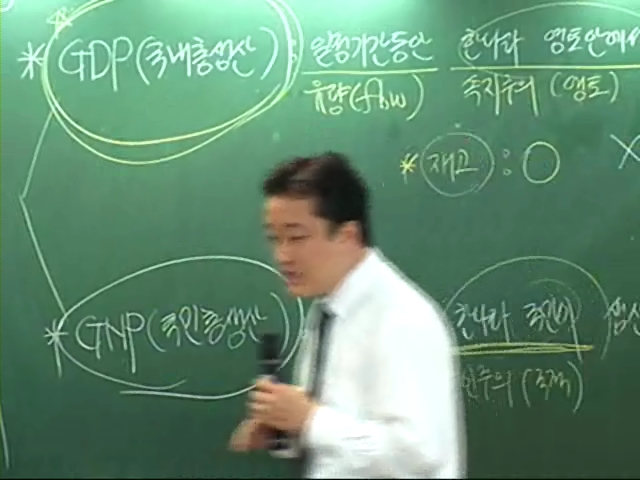 * GDP(국내총생산) : 일정기간동안 한나라 영토안에서
유량(flow) 속지주의 (영토)
* 재고 : ○ X
* GNP(국민총생산) 한나라 국민이 생산
인주의 (국적)